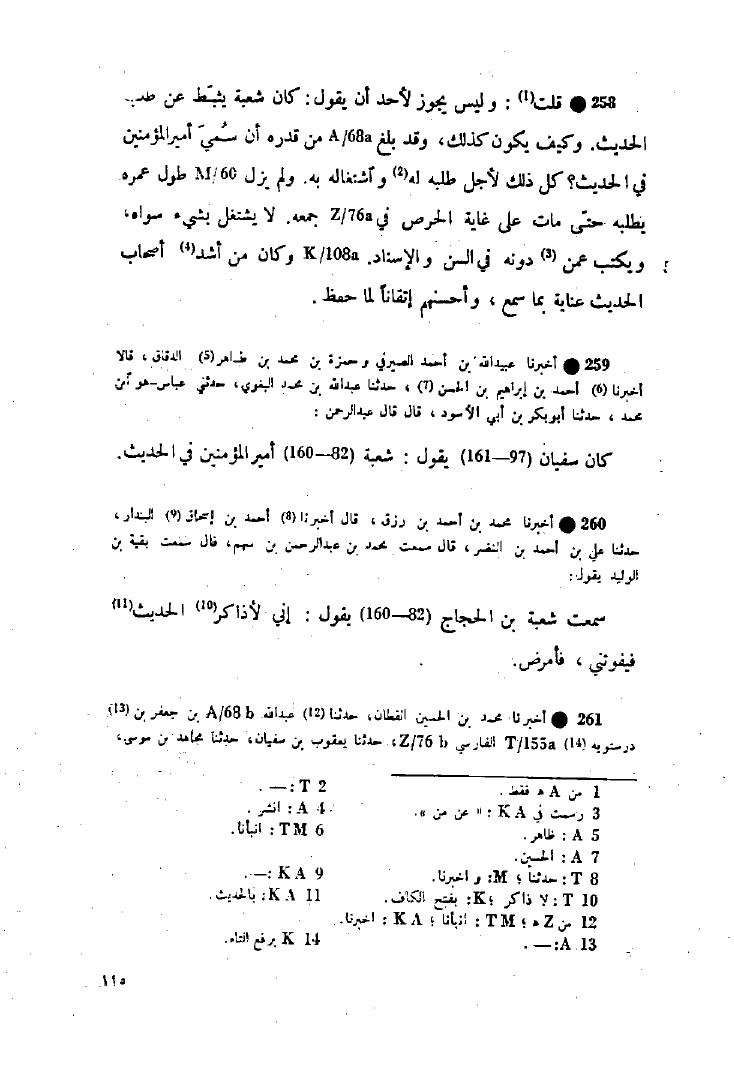 258 ● قلت(1) : وليس يجوز لأحد أن يقول: كان شعبة يثبّط عن طلب
الحديث. وكيف يكون كذلك، وقد بلغ A/68a من قدره أن سُمّيَ أميرالمؤمنين
في الحديث؟ كل ذلك لأجل طلبه له(2) وٱشتغاله به. ولم يزل M/60 طول عمره
يطلبه حتّى مات على غاية الحرص في Z/76a جمعه. لا يشتغل بشيء سواه،
ويكتب عمن (3) دونه في السن والإسناد. K/108a وكان من أشد(4) أصحاب
الحديث عناية بما سمع ، وأحسنهم إتقاناً لما حفظ .
259 ● أخبرنا عبيدالله بن أحمد الصيرفي وحمزة بن محمد بن طاهر(5) الدقاق ، قالا
أخبرنا (6) أحمد بن إبراهيم بن الحسن (7) ، حدثنا عبدالله بن محمد البغوي، حدثني عباس-هو ٱبن
محمد ، حدثنا أبوبكر بن أبي الأسود ، قال قال عبدالرحمن :
كان سفيان (97—161) يقول : شعبة (82—160) أميرالمؤمنين في الحديث.
260 ● أخبرنا محمد بن أحمد بن رزق ، قال أخبرنا (8) أحمد بن إسحاق (9) البندار ،
حدثنا علي بن أحمد بن النضر ، قال سمعت محمد بن عبدالرحمن بن سهم، قال سمعت بقية بن
الوليد يقول:
سمعت شعبة بن الحجاج (82—160) يقول : إني لأذاكر(10) الحديث(11)
فيفوتني ، فأمرض.
261 ● أخبرنا محمد بن الحسين القطان، حدثنا (12) عبدالله A/68 b بن جعفر بن (13)
درستويه (14) T/155a الفارسي Z/76 b ، حدثنا يعقوب بن سفيان، حدثنا مجاهد بن موسى،
1 من A ﻫ فقط .
2 T :— .
3 رسمت في KA : « عن من ».
4 A : انشر .
5 A : ظاهر.
6 TM : انبأنا.
7 A : الحسين.
8 T : حدثنا ؛ M: و اخبرنا.
9 KA :—.
10 T : لا ذاكر ؛ K: بفتح الكاف.
11 KA : بالحديث.
12 من Z ﻫ ؛ TM : انبأنا ؛ KA : اخبرنا.
13 A :— .
14 K برفع التاء.
١١٥